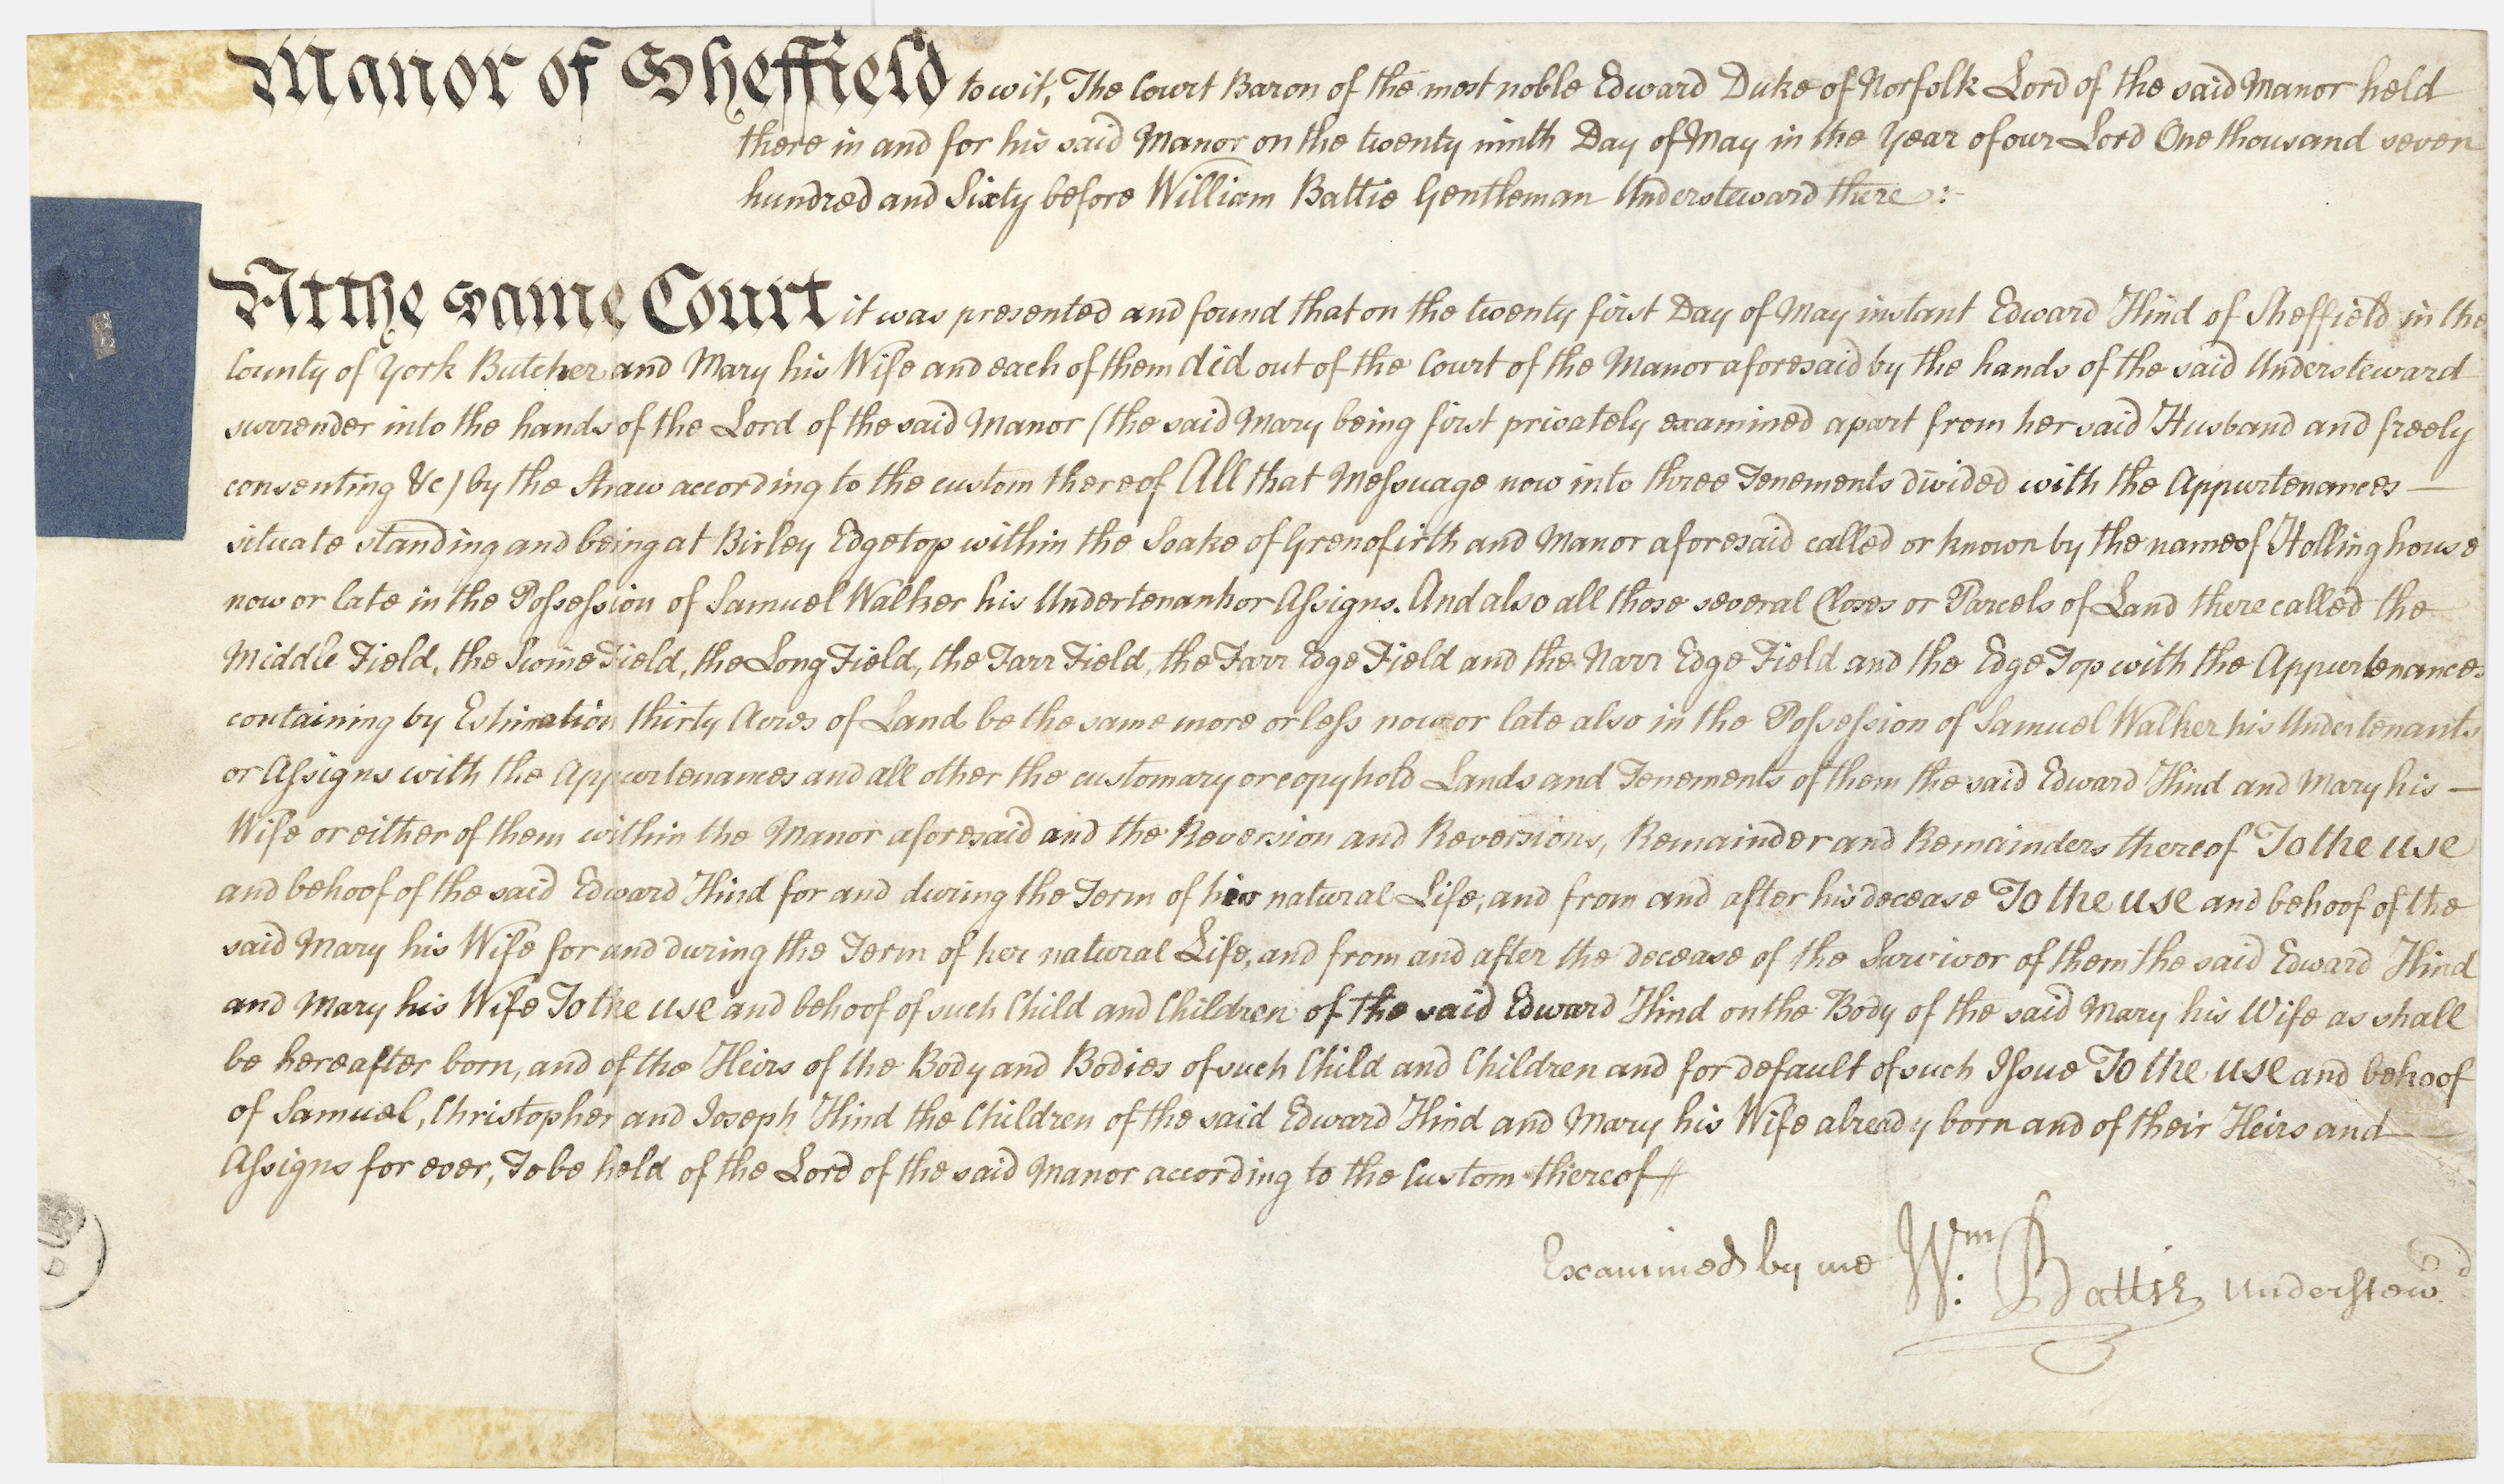 Manor of Sheffield to wit, The Court Baron of the most noble Edward Duke of Norfolk Lord of the said Manor held
there in and for his said Manor on the twenty ninth Day of May in the Year of our Lord One thousand seven
hundred and Sixty before William Battie Gentleman Understeward there :-
At the same Court it was presented and found that on the twenty first Day of May instant Edward Hind of Sheffield in the
County of York Butcher and Mary his Wife and each of them did out of the Court of the Manor aforesaid by the hands of the said Understeward
surrender into the hands of the Lord of the said Manor (the said Mary being first privately examined apart from her said Husband and freely
consenting &c) by the Straw according to the custom thereof All that Meſsuage now into three Tenements divided with the Appurtenances —
situate standing and being at Birley Edge top within the Soake of Grenofirth and Manor aforesaid called or known by the name of Hollinghouse
now or late in the Poſseſsion of Samuel Walker his Undertenants or Aſsigns. And also all those several Closes or Parcels of Land there called the
Middle Field, the Swine Field, the Long Field, the Farr Field, the Farr Edge Field and the Narr Edge Field and the Edge Top with the Appurtenances
containing by Estimation thirty Acres of Land be the same more or leſs now or late also in the Poſseſsion of Samuel Walker his Undertenants
or Aſsigns with the Appurtenances and all other the customary or copyhold Lands and Tenements of them the said Edward Hind and Mary his —
Wife or either of them within the Manor aforesaid and the Reversion and Reversions, Remainder and Remainders thereof To the use
and behoof of the said Edward Hind for and during the Term of his natural Life, and from and after his decease To the use and behoof of the
said Mary his Wife for and during the Term of her natural Life, and from and after the decease of the Survivor of them the said Edward Hind
and Mary his Wife To the use and behoof of such Child and Children of the said Edward Hind on the Body of the said Mary his Wife as shall
be hereafter born, and of the Heirs of the Body and Bodies of such Child and Children and for default of such Iſsue To the use and behoof
of Samuel, Christopher and Joseph Hind the Children of the said Edward Hind and Mary his Wife already born and of their Heirs and —
Aſsigns for ever, To be held of the Lord of the said Manor according to the Custom thereof
Examined by me Wm. Battie Understewd